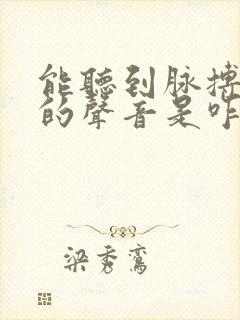 能聽到脉搏
的聲音是咋
梁秀鸞